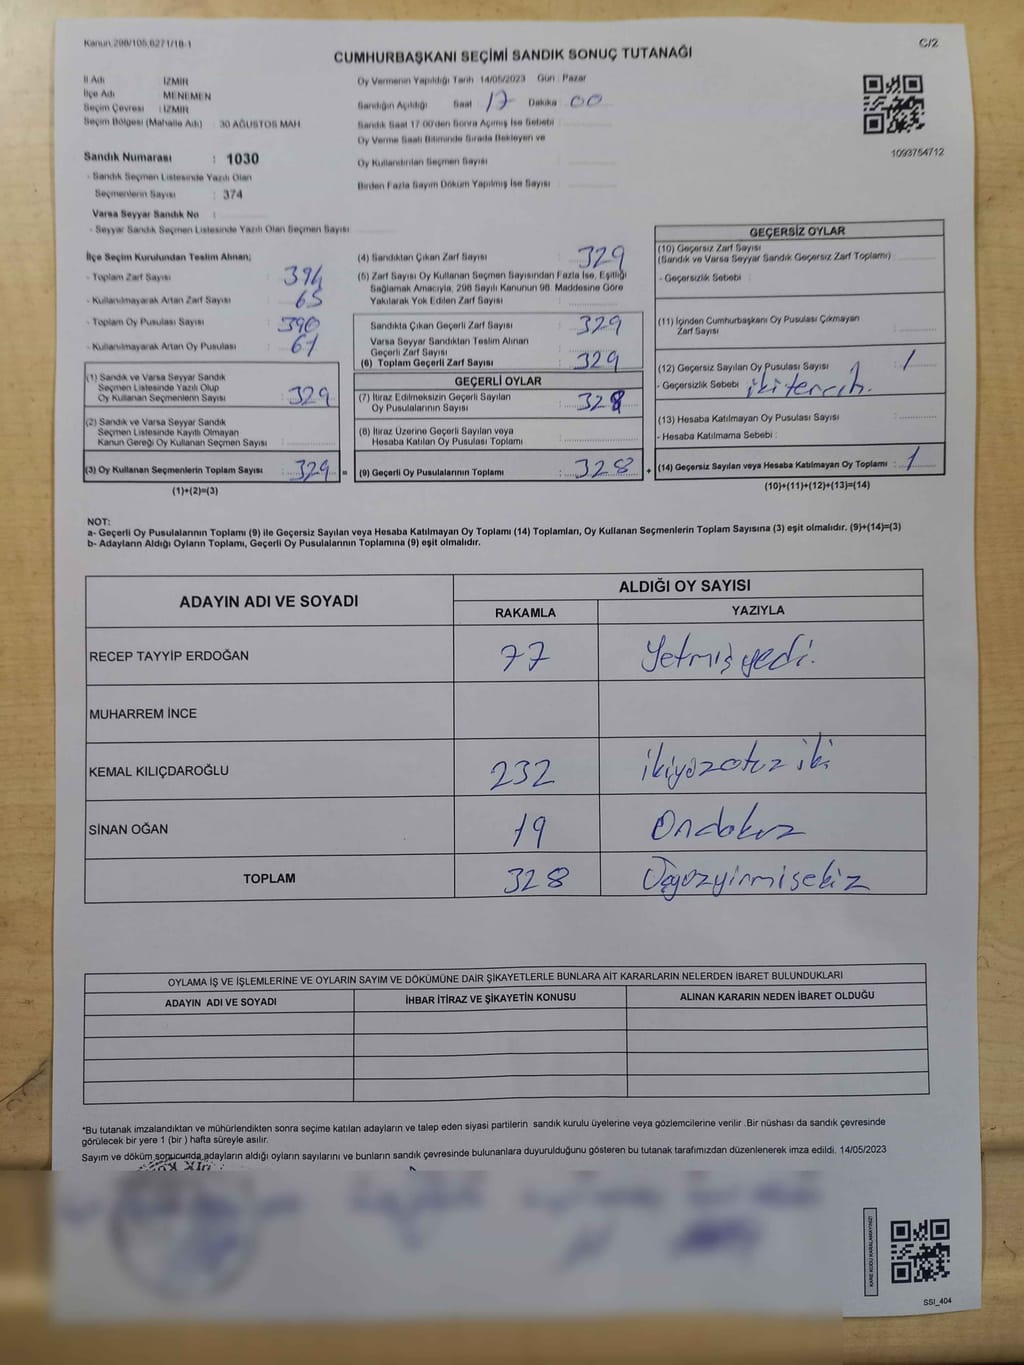 Kanun.298/105,6271/18-1
C/2
CUMHURBAŞKANI SEÇİMİ SANDIK SONUÇ TUTANAĞI
İl Adı İZMİR
İlçe Adı MENEMEN
Seçim Çevresi : İZMİR
Seçim Bölgesi (Mahalle Adı) : 30 AĞUSTOS MAH
Sandık Numarası : 1030
- Sandık Seçmen Listesinde Yazılı Olan
Seçmenlerin Sayısı : 374
Varsa Seyyar Sandık No :
- Seyyar Sandık Seçmen Listesinde Yazılı Olan Seçmen Sayısı
Oy Vermenin Yapıldığı Tarih 14/05/2023 Gün : Pazar
Sandığın Açıldığı Saat 17 Dakika 00
Sandık Saat 17:00'den Sonra Açılmış İse Sebebi
Oy Verme Saati Bitiminde Sırada Bekleyen ve
Oy Kullandırılan Seçmen Sayısı
Birden Fazla Sayım Döküm Yapılmış İse Sayısı
1093754712
İlçe Seçim Kurulundan Teslim Alınan;
- Toplam Zarf Sayısı : 394
- Kullanılmayarak Artan Zarf Sayısı : 65
- Toplam Oy Pusulası Sayısı : 390
- Kullanılmayarak Artan Oy Pusulası : 61
(1) Sandık ve Varsa Seyyar Sandık
Seçmen Listesinde Yazılı Olup
Oy Kullanan Seçmenlerin Sayısı : 329
(2) Sandık ve Varsa Seyyar Sandık
Seçmen Listesinde Kayıtlı Olmayan
Kanun Gereği Oy Kullanan Seçmen Sayısı :
(3) Oy Kullanan Seçmenlerin Toplam Sayısı : 329 =
(1)+(2)=(3)
(4) Sandıktan Çıkan Zarf Sayısı : 329
(5) Zarf Sayısı Oy Kullanan Seçmen Sayısından Fazla İse, Eşitliği
Sağlamak Amacıyla, 298 Sayılı Kanunun 98. Maddesine Göre
Yakılarak Yok Edilen Zarf Sayısı :
Sandıkta Çıkan Geçerli Zarf Sayısı : 329
Varsa Seyyar Sandıktan Teslim Alınan
Geçerli Zarf Sayısı :
(6) Toplam Geçerli Zarf Sayısı : 329
GEÇERLİ OYLAR
(7) İtiraz Edilmeksizin Geçerli Sayılan
Oy Pusulalarının Sayısı : 328
(8) İtiraz Üzerine Geçerli Sayılan veya
Hesaba Katılan Oy Pusulası Toplamı :
(9) Geçerli Oy Pusulalarının Toplamı : 328 +
GEÇERSİZ OYLAR
(10) Geçersiz Zarf Sayısı
(Sandık ve Varsa Seyyar Sandık Geçersiz Zarf Toplamı)
- Geçersizlik Sebebi :
(11) İçinden Cumhurbaşkanı Oy Pusulası Çıkmayan
Zarf Sayısı :
(12) Geçersiz Sayılan Oy Pusulası Sayısı : 1
- Geçersizlik Sebebi : iki tercih.
(13) Hesaba Katılmayan Oy Pusulası Sayısı :
- Hesaba Katılmama Sebebi :
(14) Geçersiz Sayılan veya Hesaba Katılmayan Oy Toplamı : 1
(10)+(11)+(12)+(13)=(14)
NOT:
a- Geçerli Oy Pusulalarının Toplamı (9) ile Geçersiz Sayılan veya Hesaba Katılmayan Oy Toplamı (14) Toplamları, Oy Kullanan Seçmenlerin Toplam Sayısına (3) eşit olmalıdır. (9)+(14)=(3)
b- Adayların Aldığı Oyların Toplamı, Geçerli Oy Pusulalarının Toplamına (9) eşit olmalıdır.
ADAYIN ADI VE SOYADI
ALDIĞI OY SAYISI
RAKAMLA YAZIYLA
RECEP TAYYİP ERDOĞAN 77 Yetmişyedi.
MUHARREM İNCE
KEMAL KILIÇDAROĞLU 232 ikiyüzotuz iki
SİNAN OĞAN 19 Ondokuz
TOPLAM 328 Üçyüzyirmisekiz
OYLAMA İŞ VE İŞLEMLERİNE VE OYLARIN SAYIM VE DÖKÜMÜNE DAİR ŞİKAYETLERLE BUNLARA AİT KARARLARIN NELERDEN İBARET BULUNDUKLARI
ADAYIN ADI VE SOYADI İHBAR İTİRAZ VE ŞİKAYETİN KONUSU ALINAN KARARIN NEDEN İBARET OLDUĞU
*Bu tutanak imzalandıktan ve mühürlendikten sonra seçime katılan adayların ve talep eden siyasi partilerin sandık kurulu üyelerine veya gözlemcilerine verilir .Bir nüshası da sandık çevresinde
görülecek bir yere 1 (bir ) hafta süreyle asılır.
Sayım ve döküm sonucunda adayların aldığı oyların sayılarını ve bunların sandık çevresinde bulunanlara duyurulduğunu gösteren bu tutanak tarafımızdan düzenlenerek imza edildi. 14/05/2023
KARE KODU KARALAMAYINIZ!
SSI_404